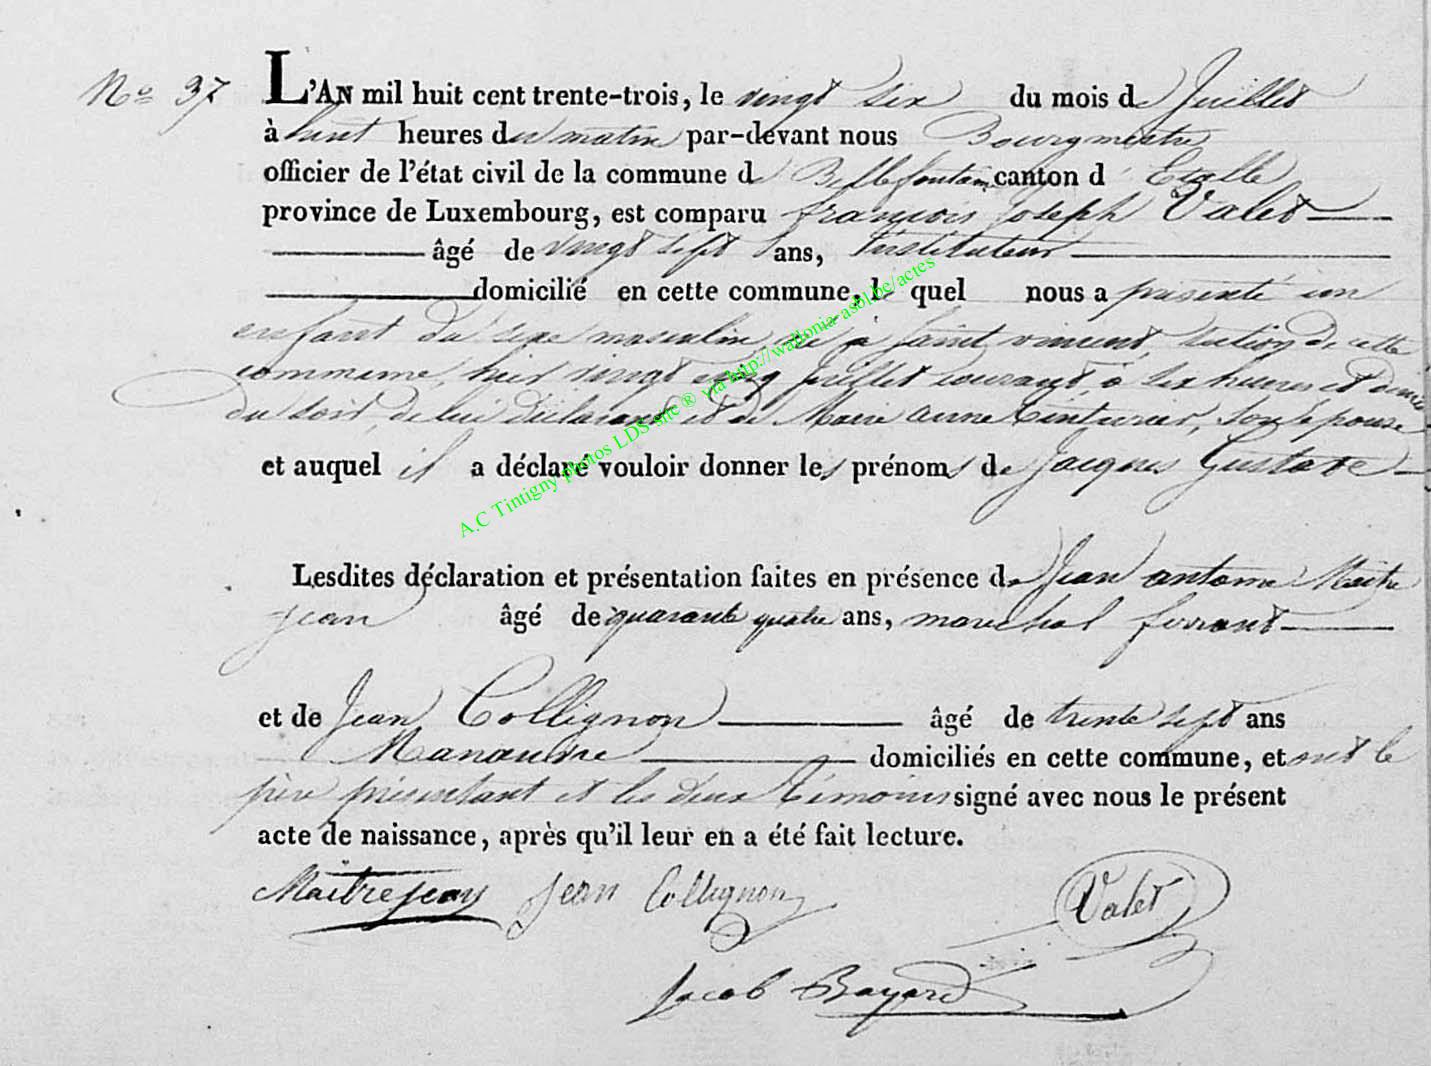 N.o 37 L'AN mil huit cent trente-trois, le vingt six du mois de Juillet
à huit heures du matin par-devant nous Bourgmestre
officier de l'état civil de la commune de Bellefontaine canton d' Etalle
province de Luxembourg, est comparu françois Joseph Valet
âgé de vingt sept ans, Instituteur
domicilié en cette commune, le quel nous a présenté un
enfant du sexe masculin, né à saint vincent, section de cette
commune, hier vingt cinq juillet courant, à six heures et demie
du soir, de lui déclarant et de Marie anne Tinturier, son épouse
et auquel il a déclaré vouloir donner les prénoms de Jacques Gustave
Lesdites déclaration et présentation faites en présence de Jean antoine Maitre
jean âgé de quarante quatre ans, marechal ferrant
et de Jean Collignon âgé de trente sept ans
Manœuvre domiciliés en cette commune, et ont le
père présentant et les deux témoins signé avec nous le présent
acte de naissance, après qu'il leur en a été fait lecture.
Maitrejean Jean Collignon Valet
Jacob Bayard
A.C Tintigny photos LDS site ® via http://wallonia-asbl.be/actes